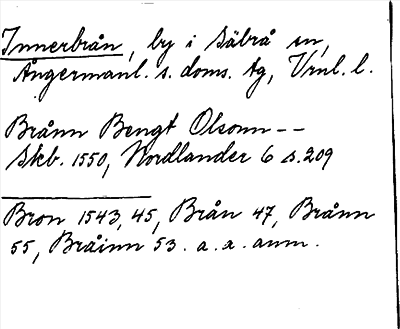 Innerbrån, by i Säbrå sn,
Ångermanl. s. doms. tg, Vrnl. l.
Brånn Bengt Olsonn --
Skb. 1550, Nordlander 6 s. 209
Bron 1543, 45, Brån 47, Brånn
55, Bråinn 53. a. a. anm.